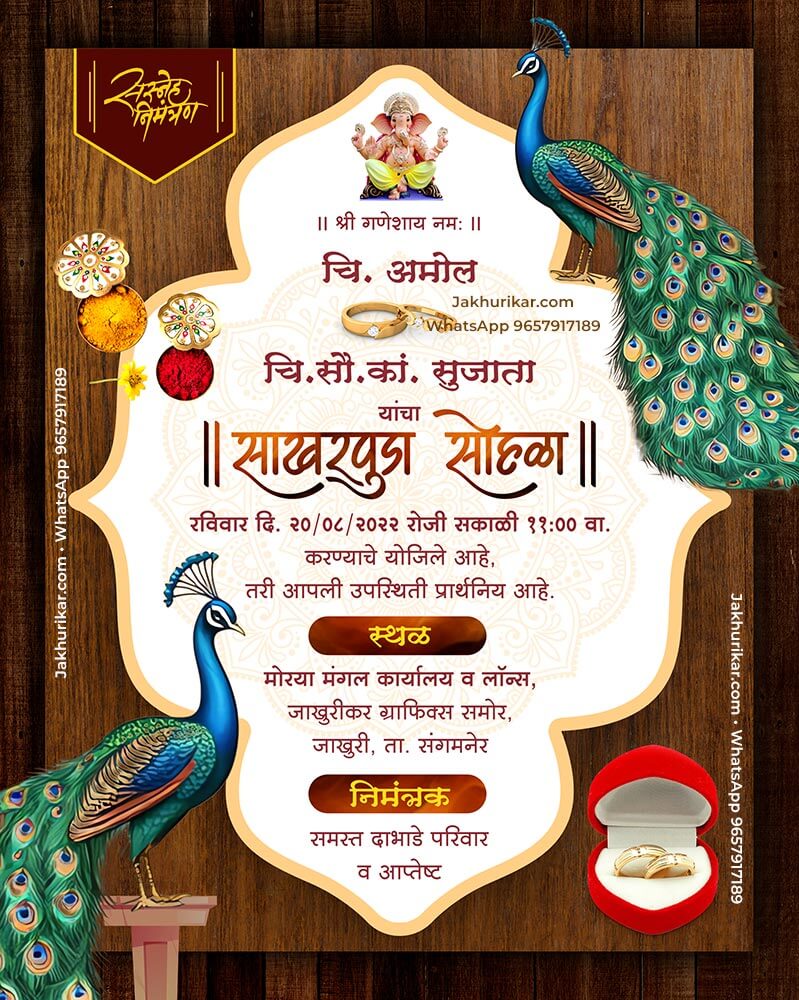 सस्नेह
निमंत्रण
॥ श्री गणेशाय नम: ॥
चि. अमोल
Jakhurikar.com
WhatsApp 9657917189
चि.सौ.कां. सुजाता
यांचा
॥ साखरपुडा सोहळा ॥
रविवार दि. २०/०८/२०२२ रोजी सकाळी ११:०० वा.
करण्याचे योजिले आहे,
तरी आपली उपस्थिती प्रार्थनिय आहे.
स्थळ
मोरया मंगल कार्यालय व लॉन्स,
जाखुरीकर ग्राफिक्स समोर,
जाखुरी, ता. संगमनेर
निमंत्रक
समस्त दाभाडे परिवार
व आप्तेष्ट
Jakhurikar.com • WhatsApp 9657917189
Jakhurikar.com • WhatsApp 9657917189